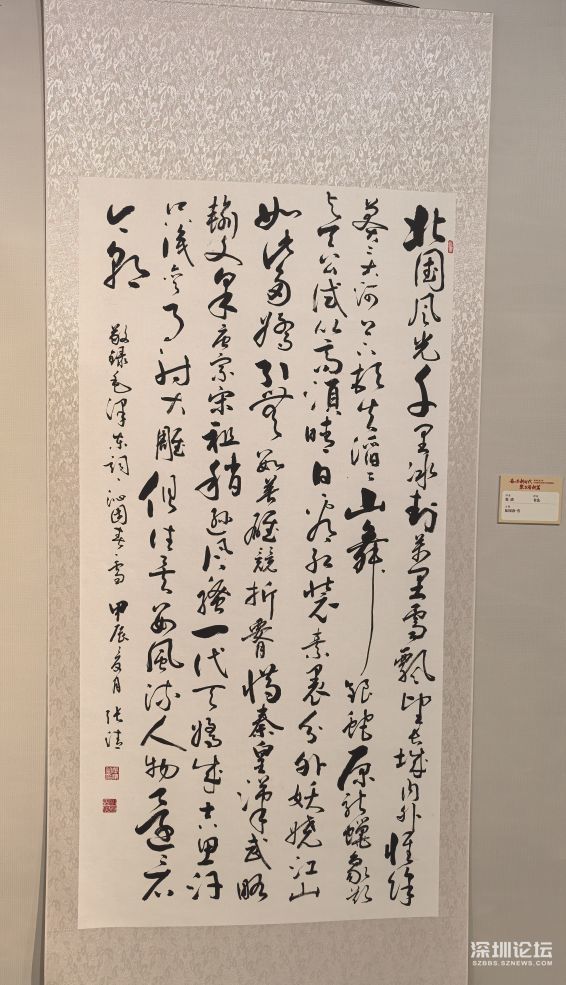 北国风光千里冰封万里雪飘望长城内外惟馀
莽〻大河上下顿失滔〻山舞银蛇原驰蠟象欲
与天公试比高须晴日看红装素裹分外妖娆江山
如此多娇引无数英雄競折腰惜秦皇汉武略
输文采唐宗宋祖稍逊风骚一代天骄成吉思汗
只识弯弓射大雕俱往矣数风流人物还看
今朝
敬录毛泽东词沁园春雪 甲辰夏月 张清
深圳论坛
SZBBS.SZNEWS.COM